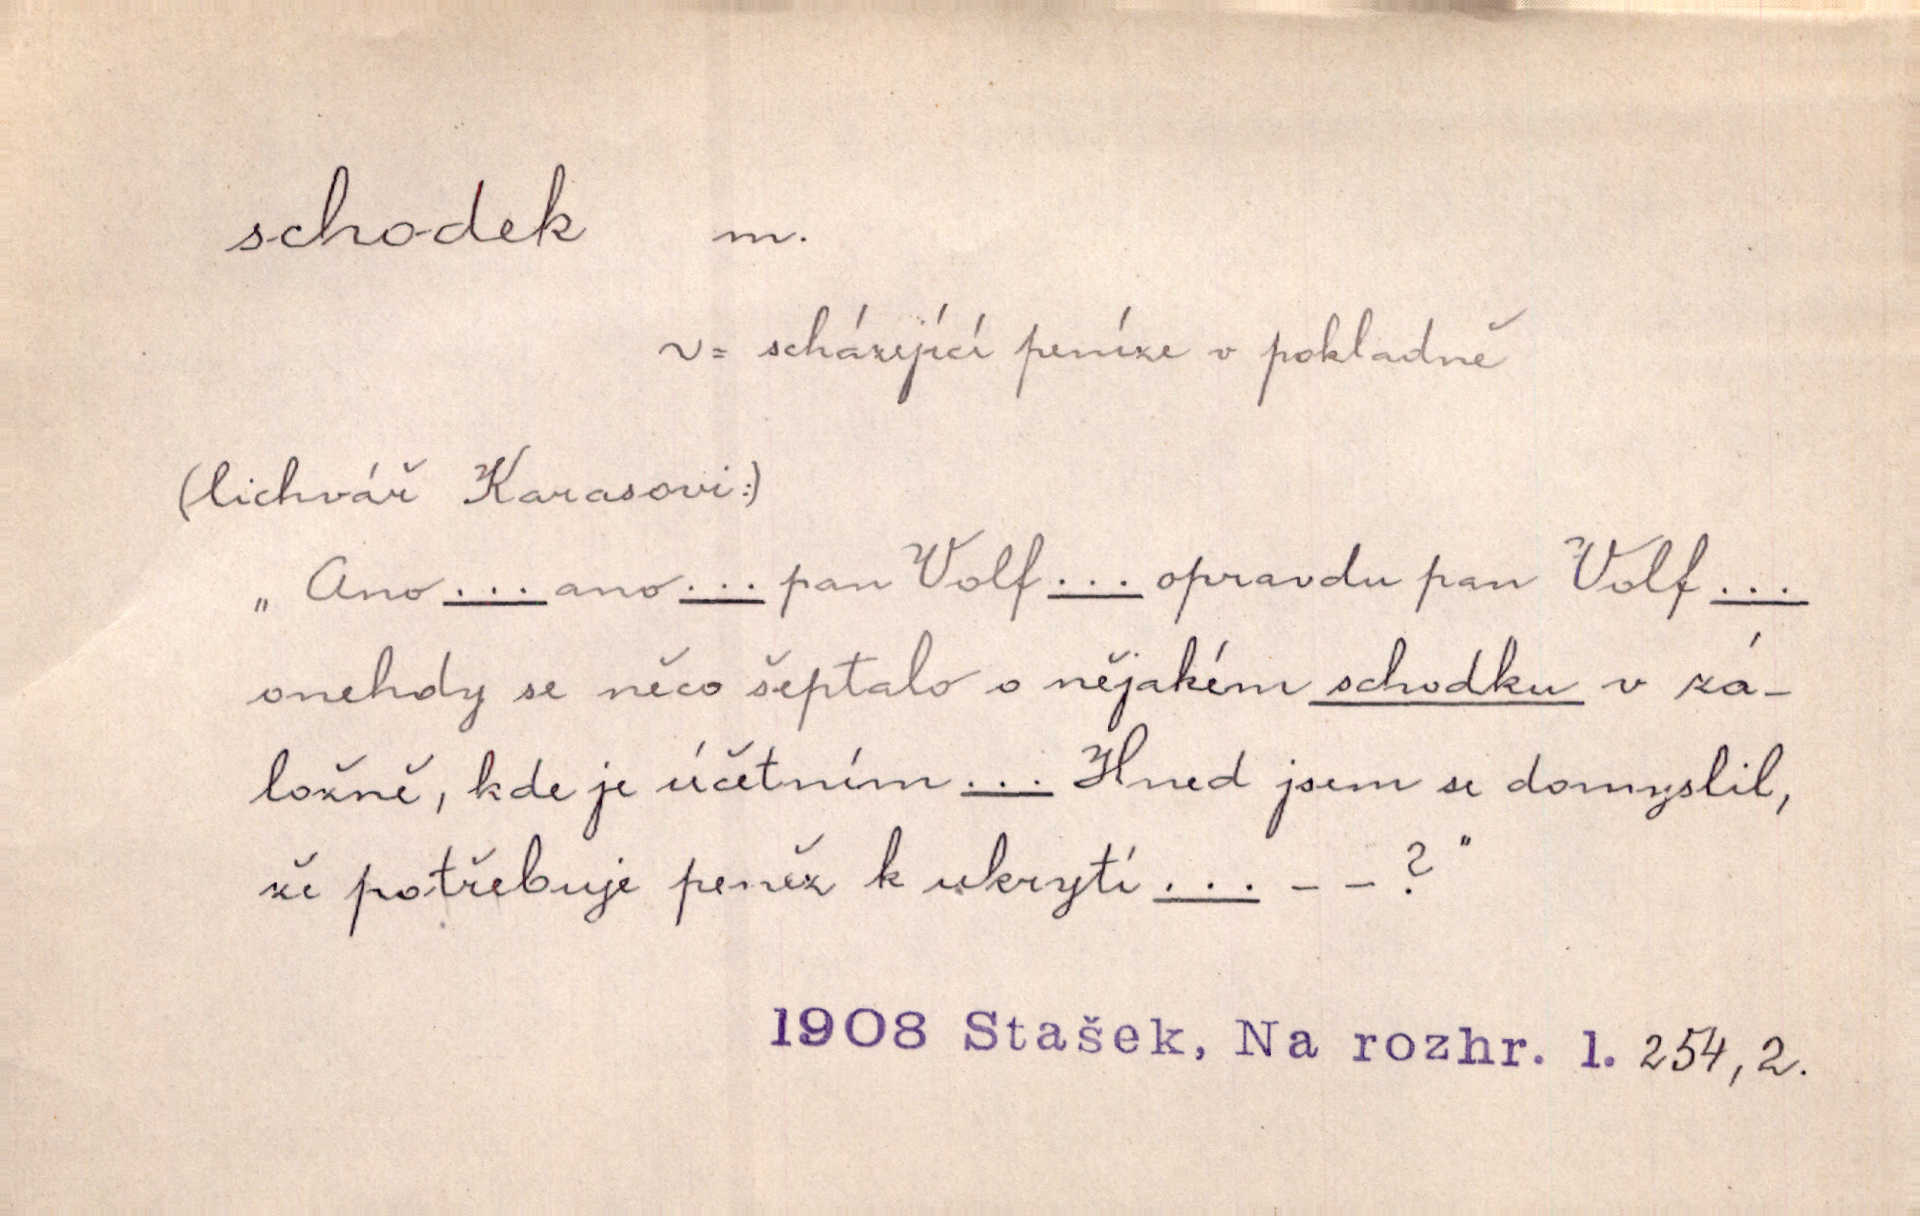 schodek m.
v= scházející peníze v pokladně
(lichvář Karasovi:)
„Ano ... ano ... pan Wolf ... opravdu pan Wolf ...
onehdy se něco šeptalo o nějakém schodku v zá-
ložně, kde je účetním ... Hned jsem se domyslil,
že potřebuje peněz k ukrytí ... – – ?"
1908 Stašek, Na rozhr. 1. 254, 2.